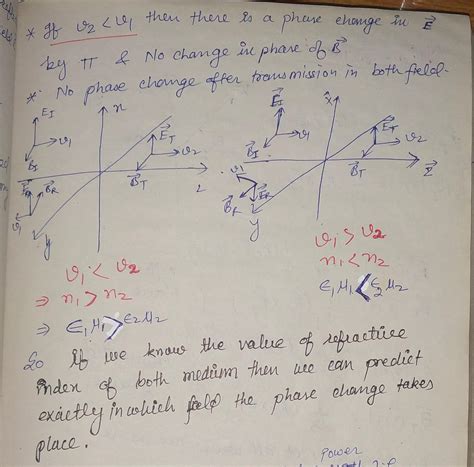 * If v₂ < v₁ then there is a phase change in E⃗
by π & No change in phase of B⃗.
* No phase change after transmission in both field.
x
E⃗I
v₁
B⃗I
E⃗T
v₂
B⃗T
z
E⃗R
B⃗R
v₁
y
v₁ < v₂
⇒ n₁ > n₂
⇒ ϵ₁μ₁ > ϵ₂μ₂
x̂
E⃗I
v₁
B⃗I
E⃗T
v₂
B⃗T
z⃗
v₁
E⃗R
B⃗R
y
v₁ > v₂
n₁ < n₂
ϵ₁μ₁ < ϵ₂μ₂
So If we know the value of refractive
index of both medium then we can predict
exactly in which field the phase change takes
place.
Power